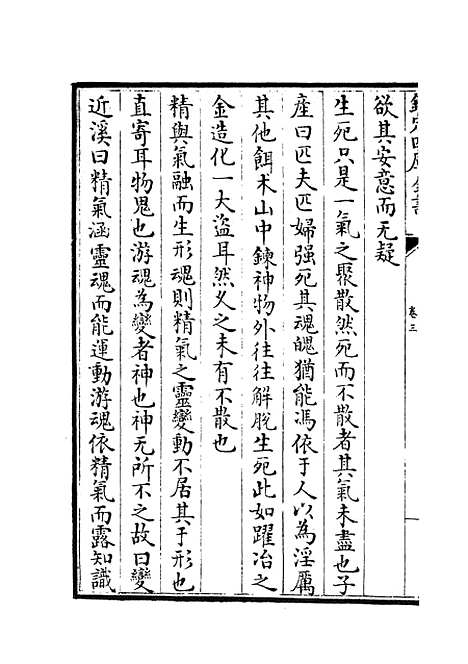 欽定四庫全書
卷三
欲其安意而无疑
生死只是一氣之聚散然死而不散者其氣未盡也子
產曰匹夫匹婦强死其魂魄猶能馮依于人以為淫厲
其他餌术山中鍊神物外往往解脫生死此如躍冶之
金造化一大盜耳然乆之未有不散也
精與氣融而生形魂則精氣之靈變動不居其于形也
直寄耳物鬼也游魂為變者神也神无所不之故曰變
近溪曰精氣涵靈魂而能運動游魂依精氣而露知識